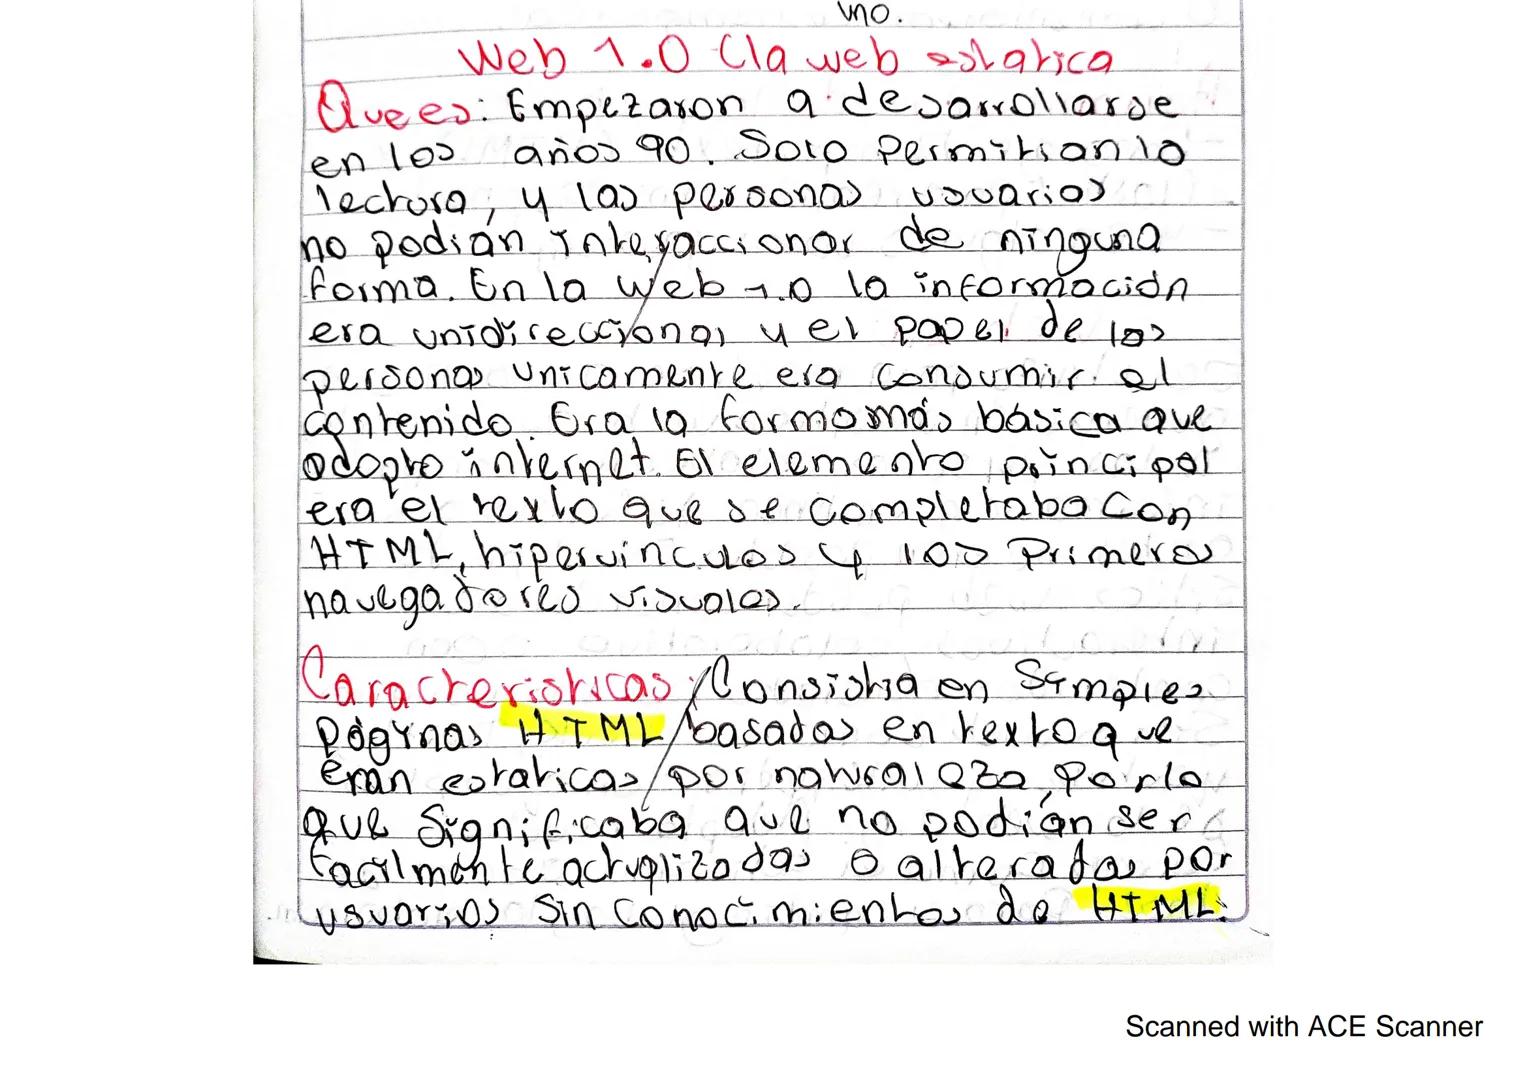 uno.
Web 1.0 (la web estatica
Que es: Empezaron a desarrollarse
en los años 90. Solo Permitian la
lectura, y las personas usuarios
no podian interaccionar de ninguna
forma. En la web 1.0 la información
era unidireccional y el papel de las
personas unicamente era consumir el
contenido. Era la forma más básica que
adopto internet. El elemento principal
era el texto que se completaba con
HTML, hipervinculos y los Primeros
navegadores visuales.
Caracteristicas: Consistia en Simples
páginas HTML basadas en texto que
eran estaticas por naturaleza, por lo
que significaba que no podían ser
facilmente actualizadas o alteradas por
usuarios sin conocimientos de HTML.
Scanned with ACE Scanner